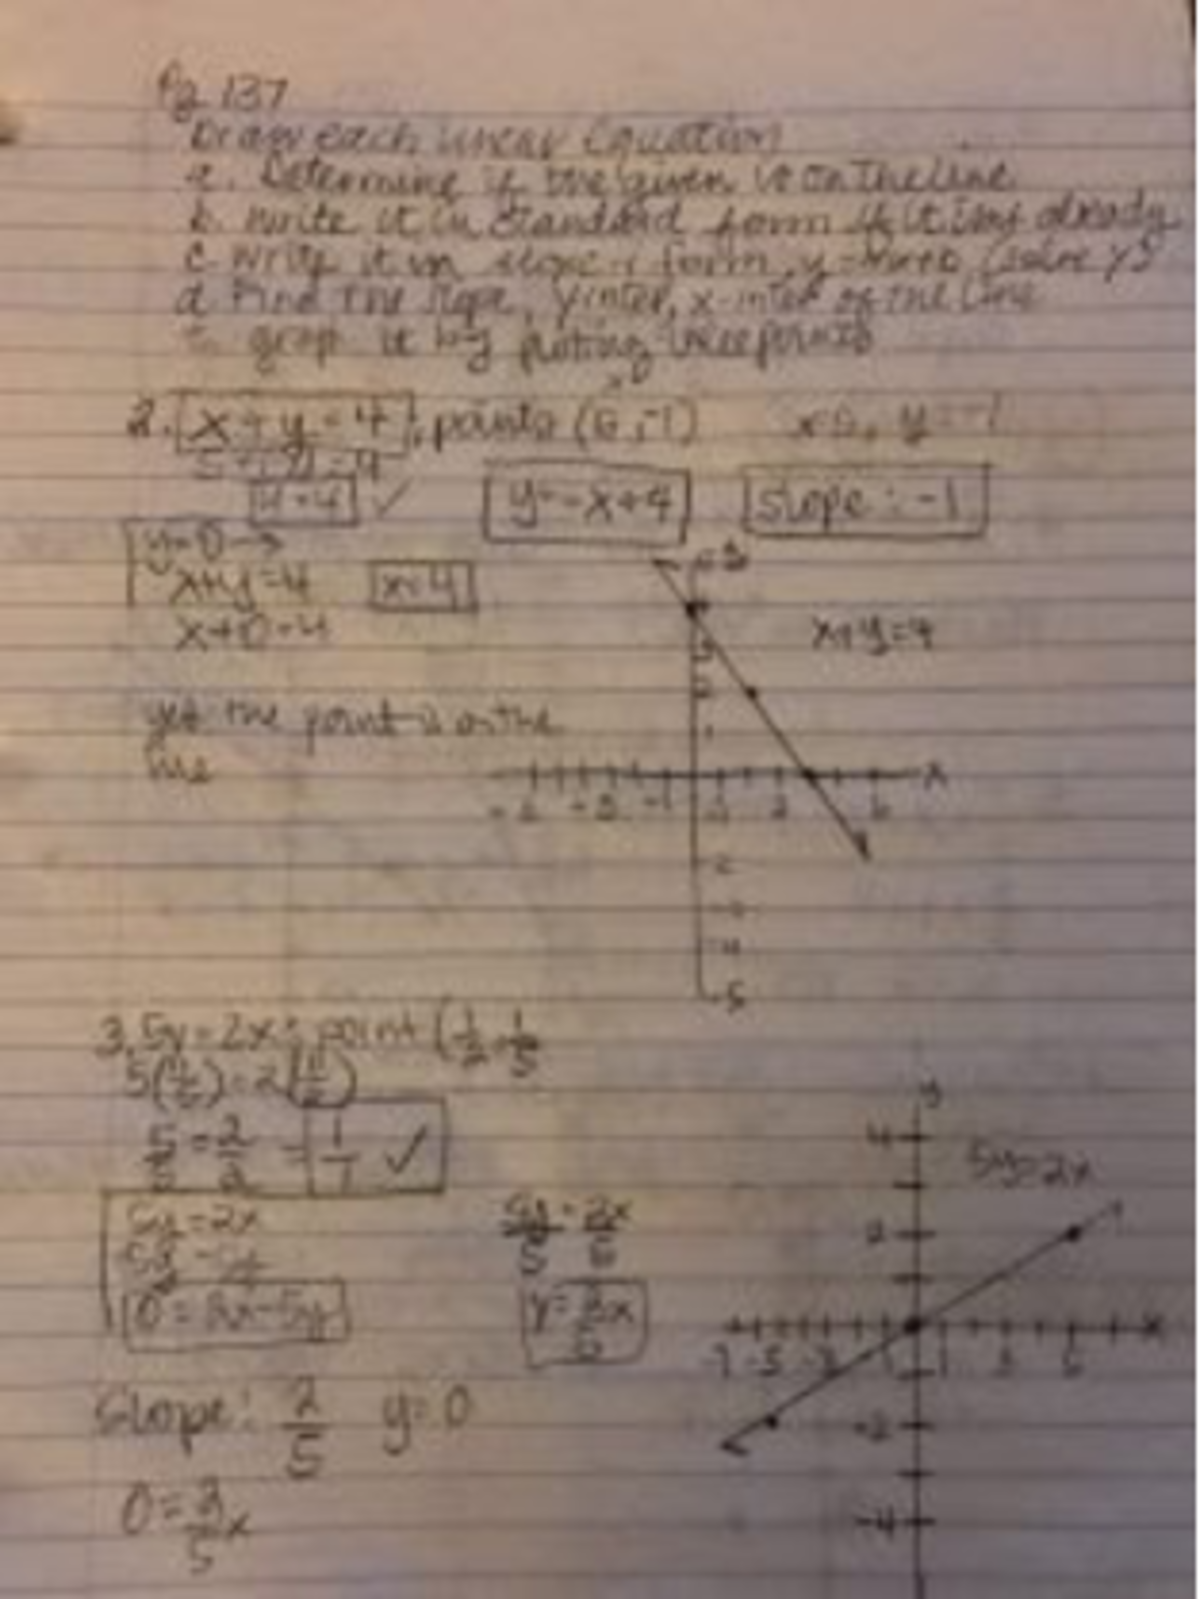 Pg 137
Draw each linear Equation
a. Determine if the given is on the line
b. write it in standard form if it isnt already
c. write it in form, y= (solve y)
d. Find the slope, y inter, x-inter of the line
grap it by plotting three points
2. x + y = 4, points (5, -1) x=5, y=-1
4=4 ✓ y=-x+4 slope: -1
y=0 →
x+y=4 x=4
x+0=4
x+y=4
yes the point is on the
line
3. 5y = 2x; point (1/2, 1/5
5(1/5) = 2(1/2)
5/5 = 2/2 = 1/1 ✓
5y = 2x 5y/5 = 2x/5
5y -5y
0 = 2x-5y y = 2x/5
5y=2x
Slope: 2/5 y=0
0 = 2/5 x